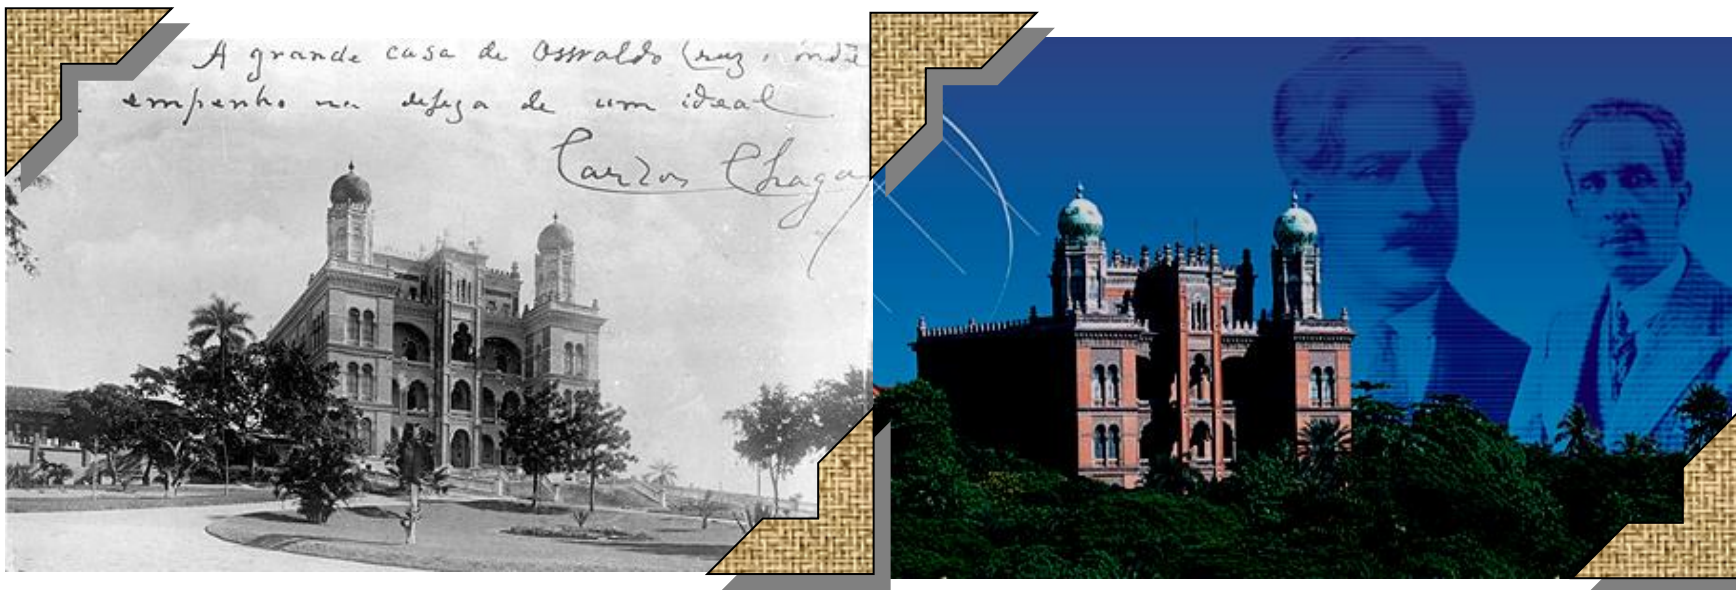 A grande casa de Oswaldo Cruz, onde
empenho na defeza de um ideal
Carlos Chagas